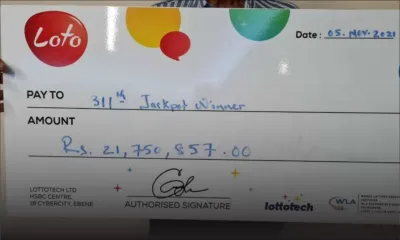 Loto
Date : 05. Nov. 2021
PAY TO 311th Jackpot Winner
AMOUNT
Rs. 21,750,857.00
LOTTOTECH LTD
HSBC CENTRE,
18 CYBERCITY, EBENE
AUTHORISED SIGNATURE
lottotech
WLA